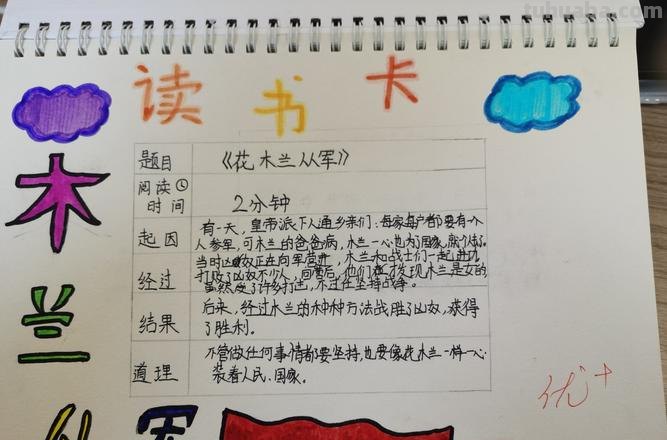 tuhuaha.com
读书卡
木兰从军
题目
《花木兰从军》
阅读
时间
2分钟
起因
有一天，皇帝派下人通乡亲们：每家每户都要有一个
人参军，可木兰的爸爸病，木兰一心也为了国家，就
经过
当时凶奴正在向军营进，木兰和战士们一起
打败了凶奴不少人，回营后，他们才发现木兰是女的，
虽然受了许多打击，不过在坚持战争。
结果
后来，经过木兰的种种方法战胜了凶奴，获得
了胜利。
道理
不管做任何事情都要坚持，也要像花木兰一样一心
装着人民、国家。
优+